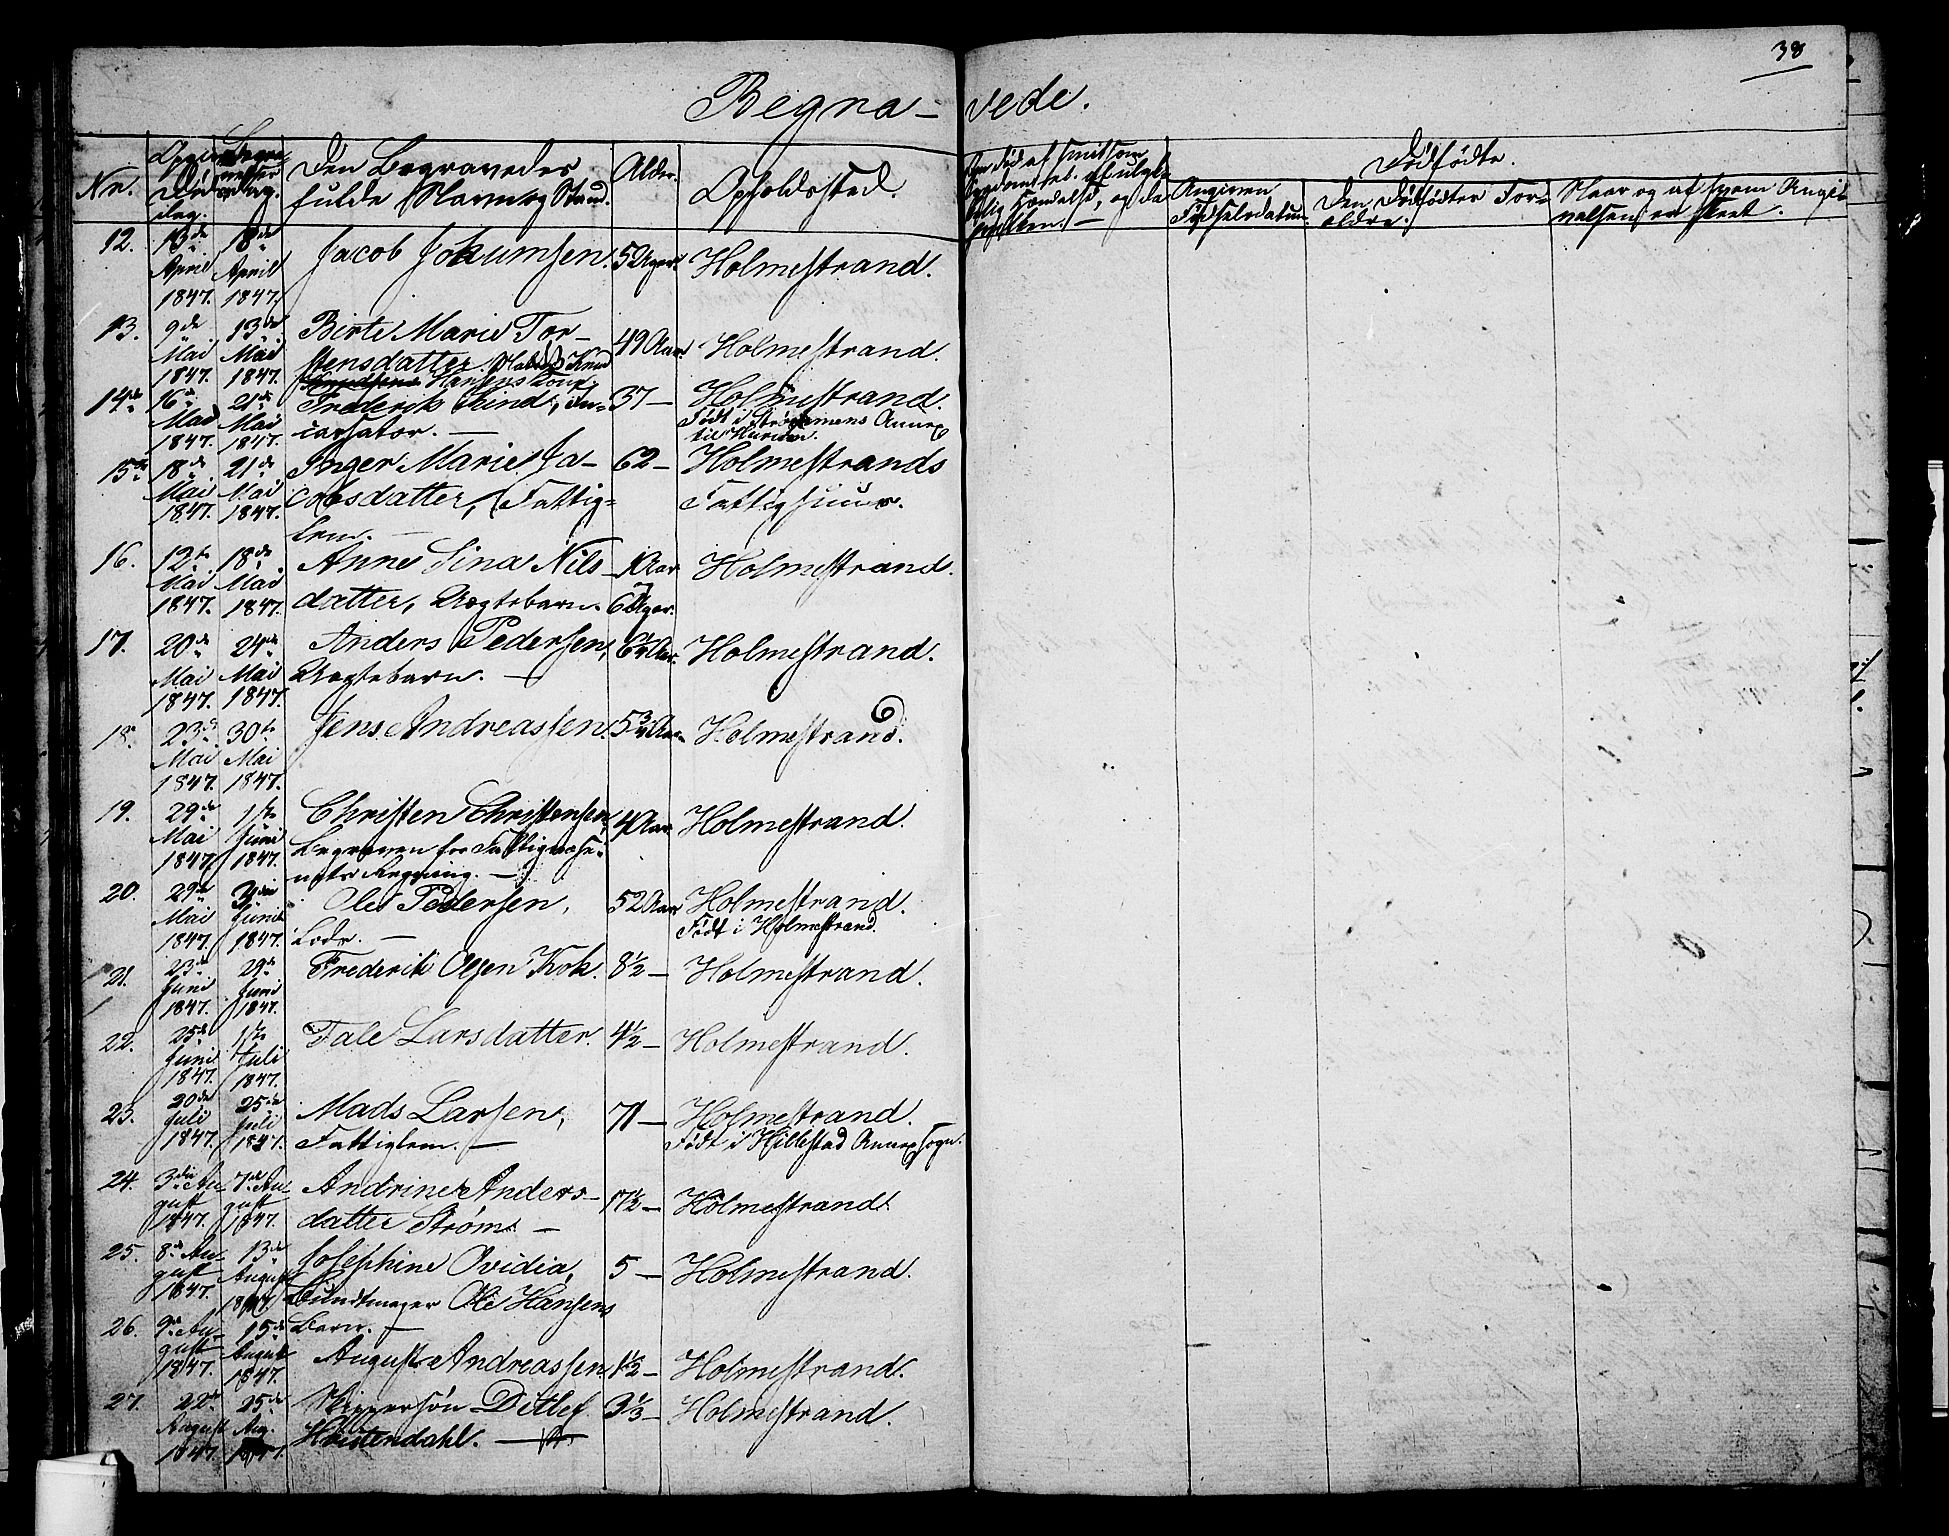 38
Begra- vede.
Nr.
Døds dag.
Den Begravedes
fulde Navn og Stand
Alder.
Opholdssted.
Dødfødte.
Angiven
Fødselsdatum.
Den Dødfødtes For-
ældre.
Naar og af hvem Angi-
velsen er skeet.
12. 13de April 1847. 18de April 1847. Jacob Jokumsen. 5 Uger. Holmestrand.
13. 9de Mai 1847. 13de Mai 1847. Birte Marie Tor-
stensdatter. Knud
Hansens Kone
49 Aar Holmestrand.
14de 16de Mai 1847. 21de Mai 1847. Frederik Lind, In-
carsator. —
37 — Holmestrand.
Født i Strømmens Annex
til Hurum.
15de 18de Mai 1847. 21de Mai 1847. Inger Marie Ja-
cobsdatter, Fattig-
lem. —
62 — Holmestrands
Fattighuus.
16. 12te Mai 1847. 18de Mai 1847. Anne Lina Nils-
datter, Uægtebarn.
1 Aar
6 Uger.
Holmestrand.
17. 20de Mai 1847. 24de Mai 1847. Anders Pedersen,
Uægtebarn. —
Holmestrand.
18. 23de Mai 1847. 30te Mai 1847. Jens Andreassen. 5 3/4 Aar Holmestrand.
19. 29de Mai 1847. 1ste Juni 1847. Christen Christensen,
Begraven for Fattigvæse-
nets Regning. —
4 Aar Holmestrand.
20. 29de Mai 1847. 3die Juni 1847. Ole Pedersen,
Lods. —
52 Aar Holmestrand.
Født i Holmestrand.
21. 23de Juni 1847. 29de Juni 1847. Frederik Olsen Kok. 8 1/2 — Holmestrand.
22. 25de Juni 1847. 1ste Juli 1847. Tale Larsdatter. 4 1/2 — Holmestrand.
23. 20de Juli 1847. 25de Juli 1847. Mads Larsen,
Fattiglem. —
71 — Holmestrand.
Født i Hillestad Annexsogn.
24. 3die August 1847. 7de August 1847. Andrine Anders-
datter Strøm. —
17 1/2 — Holmestrand.
25. 8de August 1847. 13de August 1847. Josephine Ovidia,
Bundtmager Ole Hansens
Barn. —
5 — Holmestrand.
26. 9de August 1847. 15de August 1847. August Andreassen 1 1/2 — Holmestrand.
27. 22de August 1847. 25de Aug. 1847. Skippersøn Ditlef
Holstendahl. —
3 1/3 — Holmestrand.